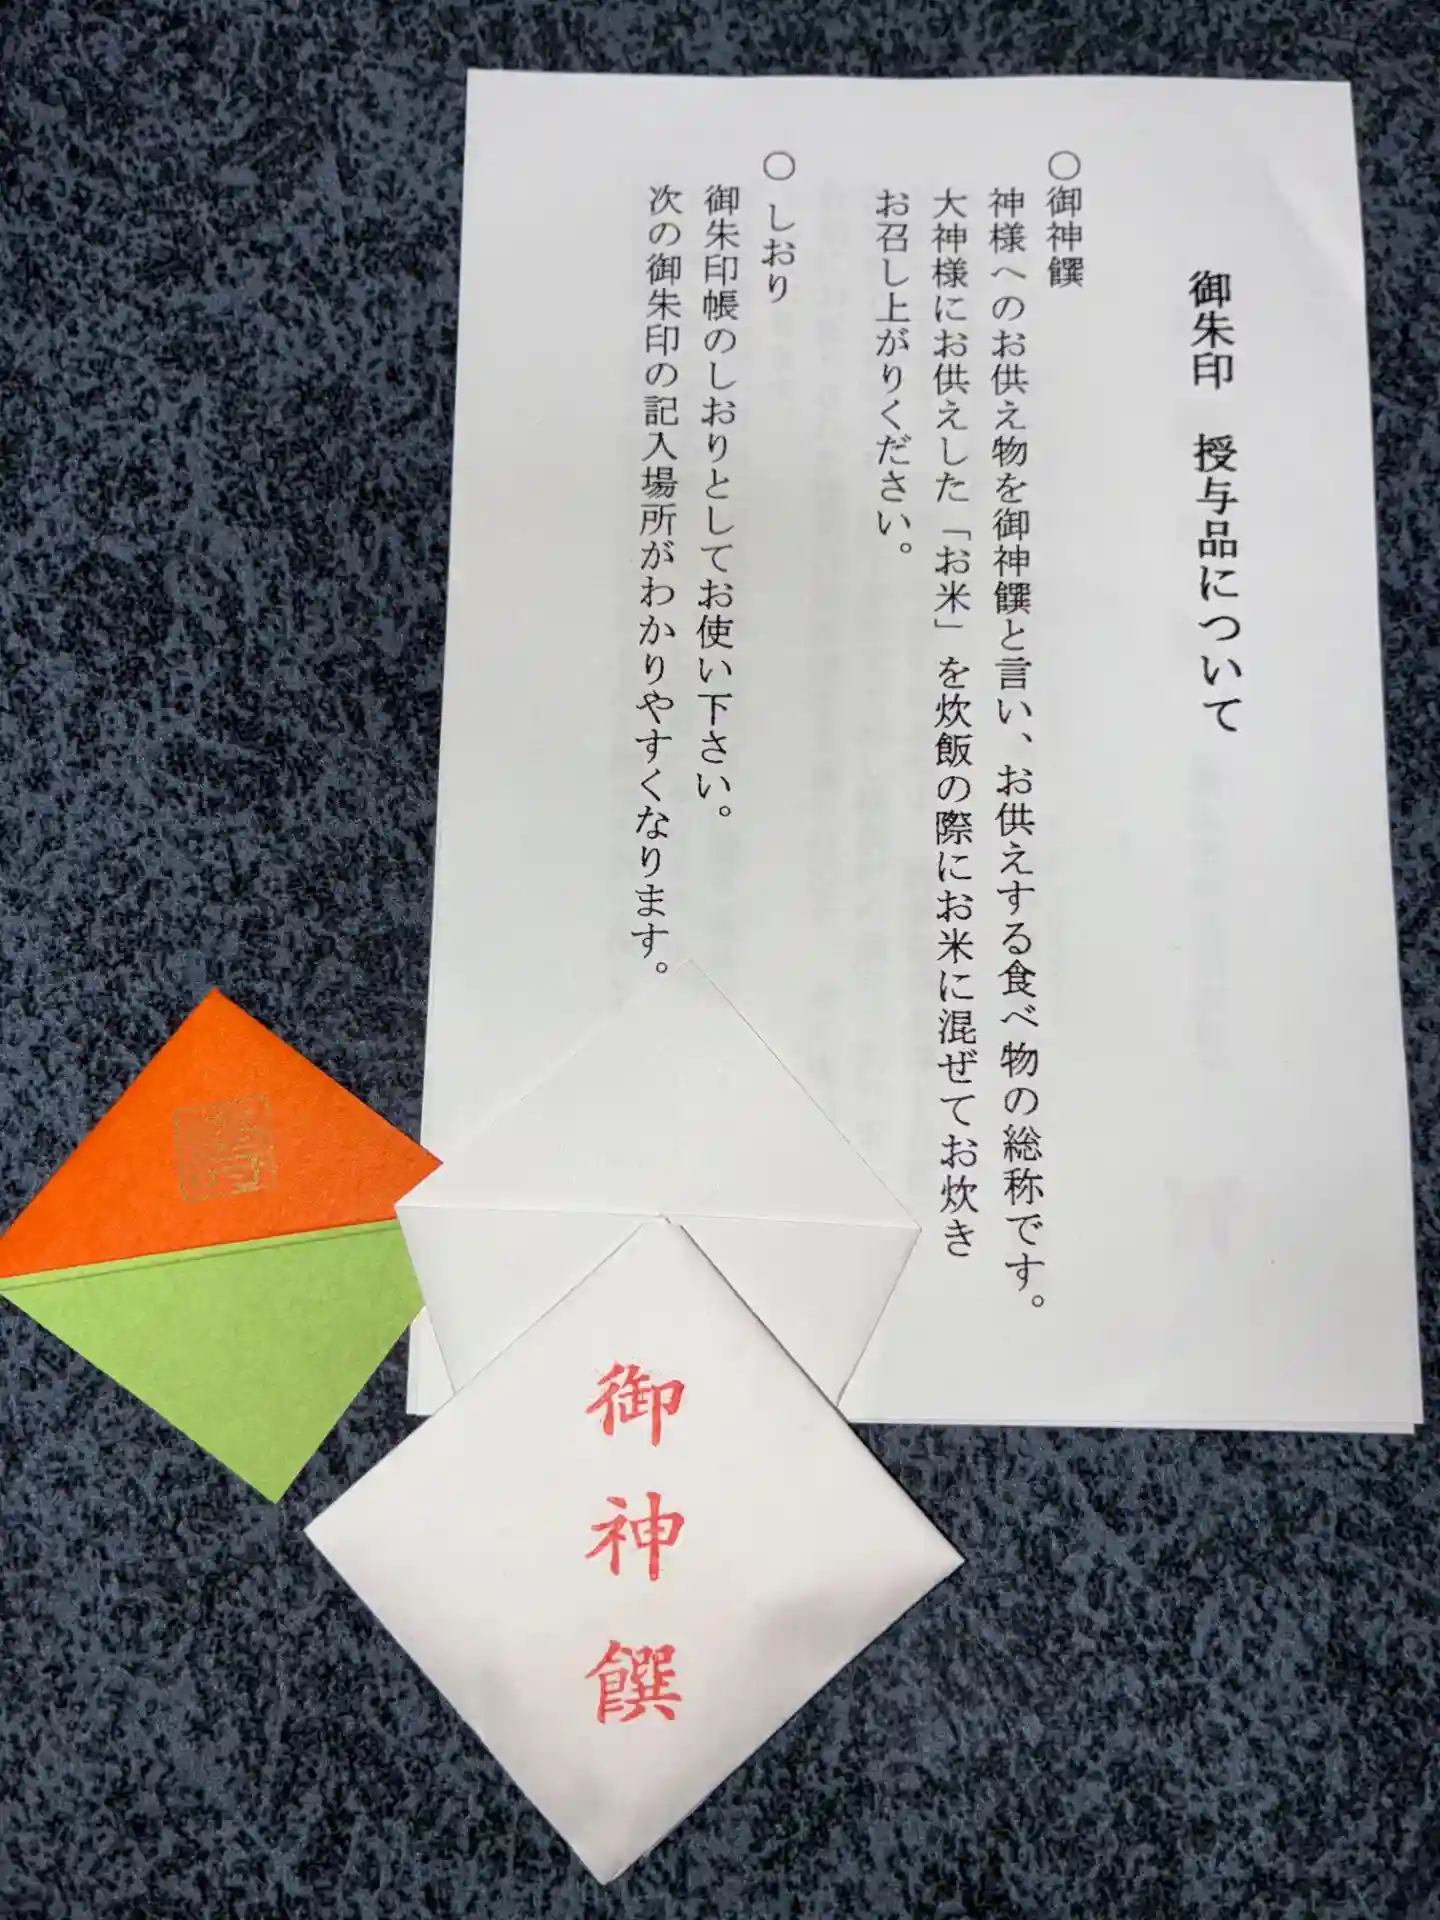 御朱印　授与品について
○御神饌
神様へのお供え物を御神饌と言い、お供えする食べ物の総称です。
大神様にお供えした「お米」を炊飯の際にお米に混ぜてお炊き
お召し上がりください。
○しおり
御朱印帳のしおりとしてお使い下さい。
次の御朱印の記入場所がわかりやすくなります。
御神饌